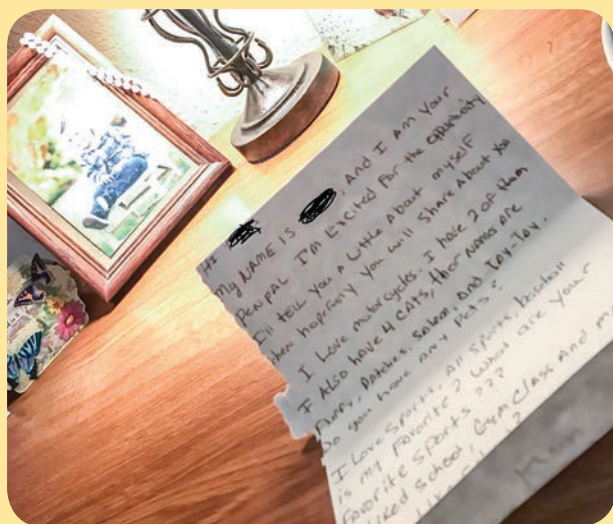 Hi
My NAME is , AND I AM your
PEN PAL I'M Excited For the opportunity
I'll tell you A Little About myself
then hopefully you will Share About you
I Love motorcycles. I have 2 of them
I Also have 4 CAts, ther NAmes are
Patches, Salem, and Tay-Tay.
Do you have any Pets?
I Love Sports, All Sports, baseball
is my Favorite? What are your
Favorite Sports???
school, Gym Class and